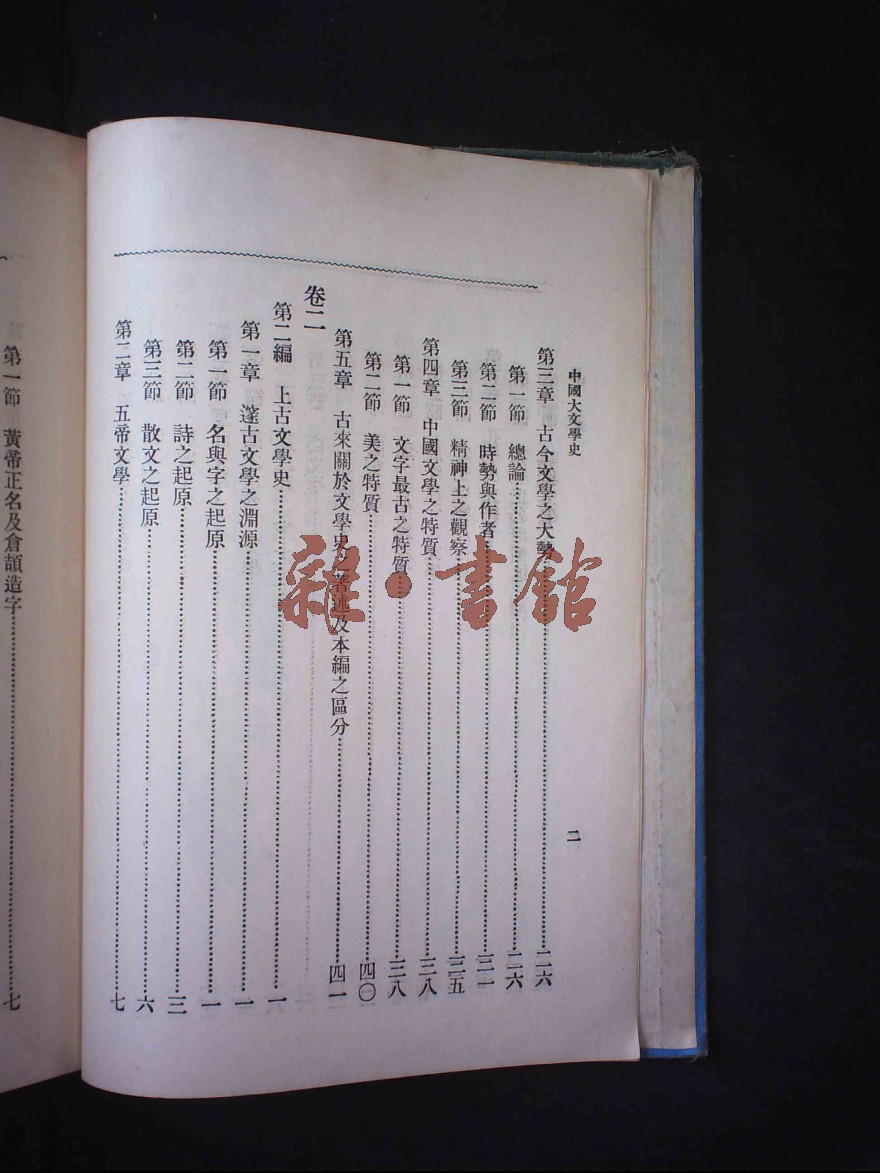 中國大文學史
二
第三章 古今文學之大勢 二六
第一節 總論 二六
第二節 時勢與作者 三一
第三節 精神上之觀察 三五
第四章 中國文學之特質 三八
第一節 文字最古之特質 三八
第二節 美之特質 四〇
第五章 古來關於文學史之著述及本編之區分 四一
卷二
第二編 上古文學史 一
第一章 邃古文學之淵源 一
第一節 名與字之起原 一
第二節 詩之起原 三
第三節 散文之起原 六
第二章 五帝文學 七
第一節 黃帝正名及倉頡造字 七
雜·書館